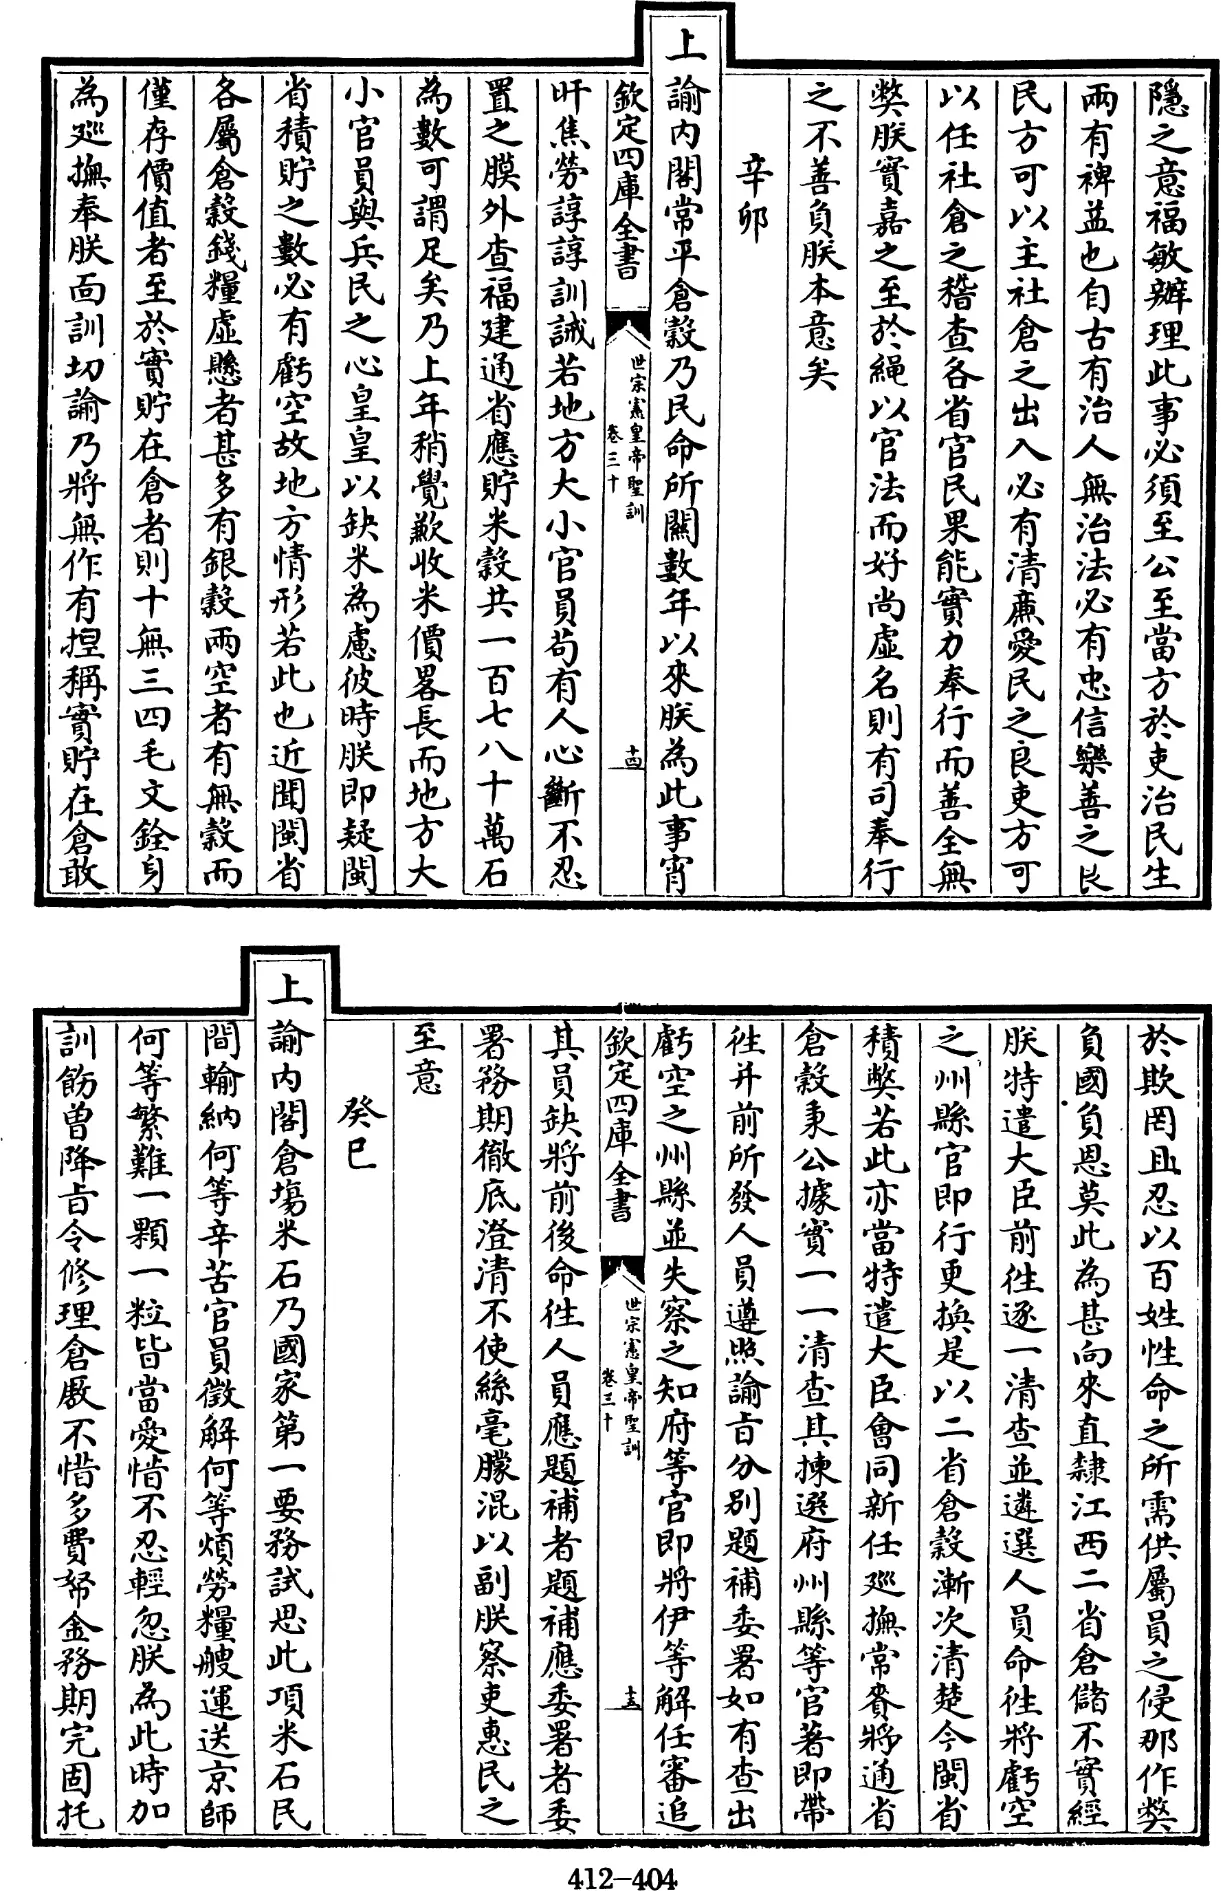 隱之意福敏辦理此事必須至公至當方於吏治民生
兩有裨益也自古有治人無治法必有忠信樂善之良
民方可以主社倉之出入必有清亷愛民之良吏方可
以任社倉之稽查各省官民果能實力奉行而善全無
弊朕實嘉之至於繩以官法而好尚虛名則有司奉行
之不善負朕本意矣
辛卯
上諭内閣常平倉穀乃民命所關數年以來朕為此事宵
欽定四庫全書
世宗憲皇帝聖訓
卷三十
十四
旰焦勞諄諄訓誡若地方大小官員苟有人心斷不忍
置之膜外查福建通省應貯米穀共一百七八十萬石
為數可謂足矣乃上年稍覺歉收米價畧長而地方大
小官員與兵民之心皇皇以缺米為慮彼時朕即疑閩
省積貯之數必有虧空故地方情形若此也近聞閩省
各屬倉穀錢糧虛懸者甚多有銀穀兩空者有無穀而
僅存價值者至於實貯在倉者則十無三四毛文銓身
為廵撫奉朕面訓切諭乃將無作有揑稱實貯在倉敢
於欺罔且忍以百姓性命之所需供屬員之侵那作弊
負國負恩莫此為甚向來直隸江西二省倉儲不實經
朕特遣大臣前徃逐一清查並遴選人員命徃將虧空
之州縣官即行更換是以二省倉穀漸次清楚今閩省
積弊若此亦當特遣大臣會同新任廵撫常賚將通省
倉穀秉公據實一一清查其揀選府州縣等官著即帶
徃并前所發人員遵照諭旨分别題補委署如有查出
虧空之州縣並失察之知府等官即將伊等解任審追
欽定四庫全書
世宗憲皇帝聖訓
卷三十
十五
其員缺將前後命徃人員應題補者題補應委署者委
署務期徹底澄清不使絲毫朦混以副朕察吏惠民之
至意
癸巳
上諭内閣倉塲米石乃國家第一要務試思此項米石民
間輸納何等辛苦官員徵解何等煩勞糧艘運送京師
何等繁難一顆一粒皆當愛惜不忍輕忽朕為此時加
訓飭曾降旨令修理倉厫不惜多費帑金務期完固托
412-404